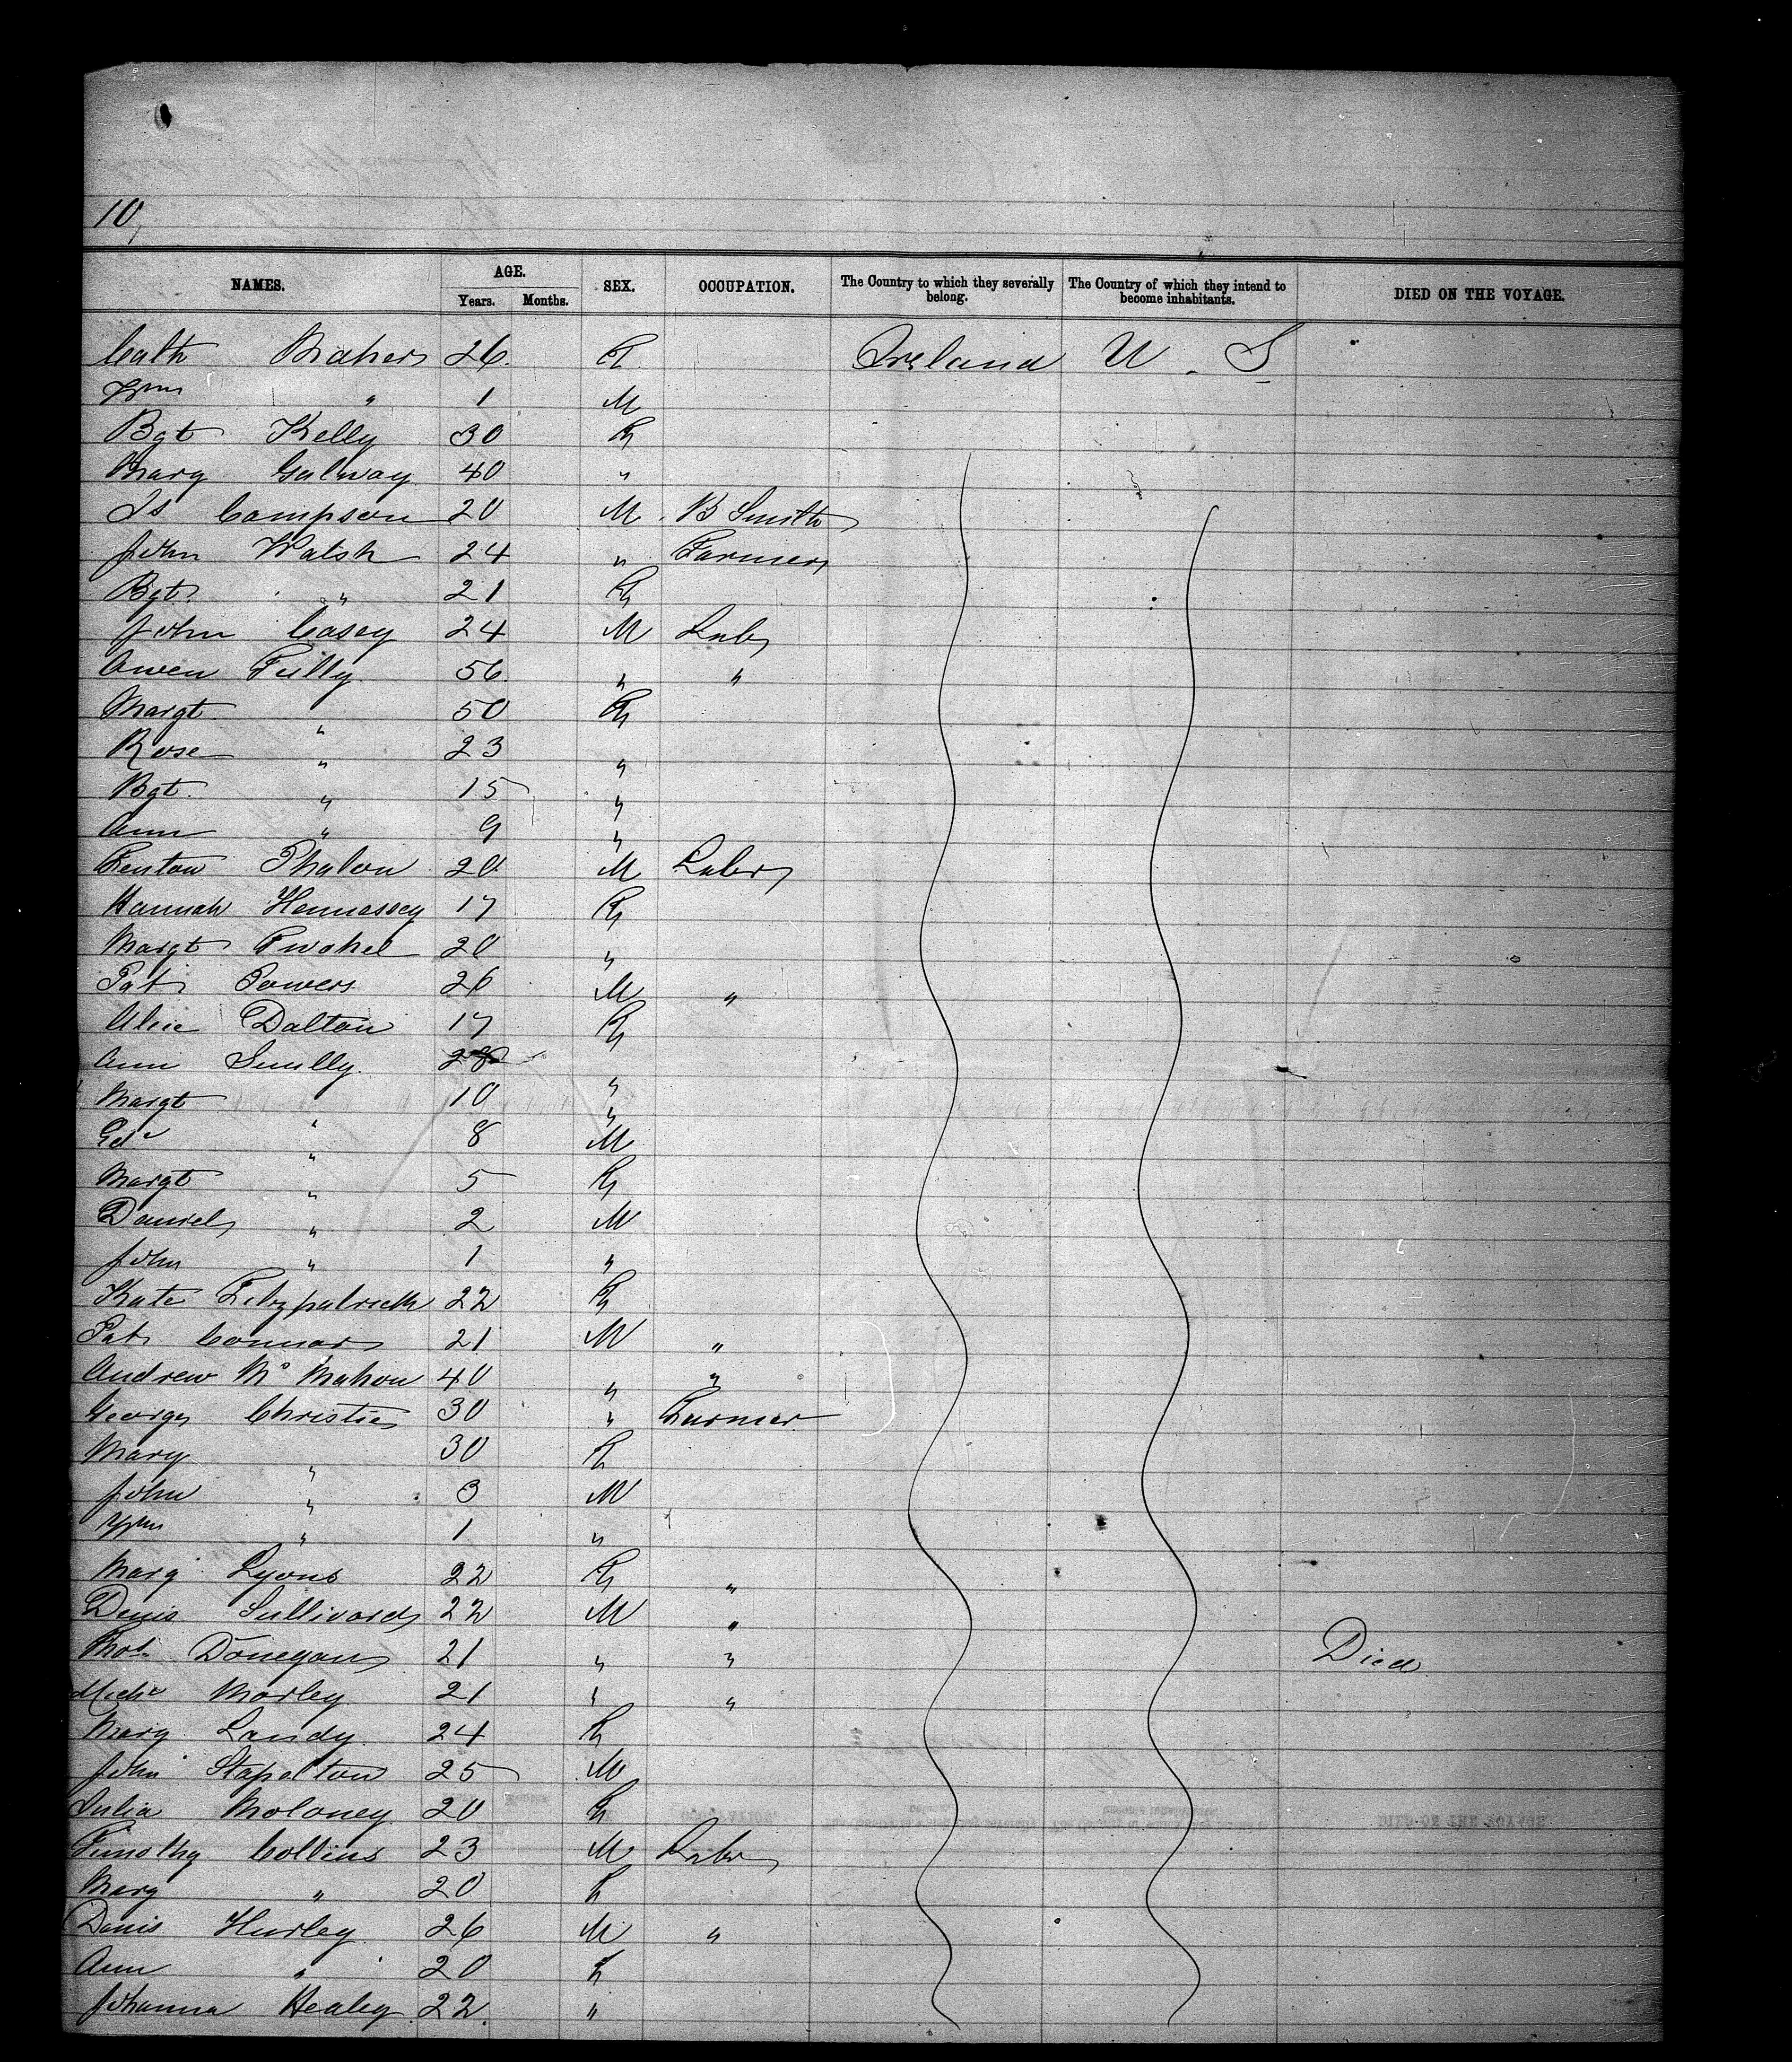 10,
NAMES. AGE. Years. Months. SEX. OCCUPATION. The Country to which they severally belong. The Country of which they intend to become inhabitants. DIED ON THE VOYAGE.
Cath Maher 26. F. Ireland U. S
Wm " 1 M
Bgt Kelly 30 F
Mary Galway 40 "
Js Compson 20 M. B Smith
John Walsh 24 " Farmer
Bgt. " 21 F
John Casey 24 M Labr
Owen Tully 56. " "
Margt " 50 F
Rose " 23 "
Bgt. " 15 "
Ann " 9 "
Fenton Phalon 20 M Labr
Hannah Hennessey 17 F
Margt 20 "
Pat Powers 26 M "
Alice Dalton 17 F
Ann Scully 28 "
Margt " 10 "
Ed " 8 M
Margt " 5 F
Daniel " 2 M
John " 1 "
Kate Fitzpatrick 22 F
Pat Connor 21 M "
Andrew Mc Mahon 40 " "
George Christie 30 " Farmer
Mary " 30 F
John " 3 M
Wm " 1 "
Mary Lyons 22 F "
Denis 22 M "
Thos. Donegan 21 " " Died
Michl Morley 21 " "
Mary Landy 24 F
John Stapelton 25 M
Julia Moloney 20 F
Timothy Collins 23 M Labr
Mary " 20 F
Denis Hurley 26 M "
Ann " 20 F
Johanna Healey 22. "